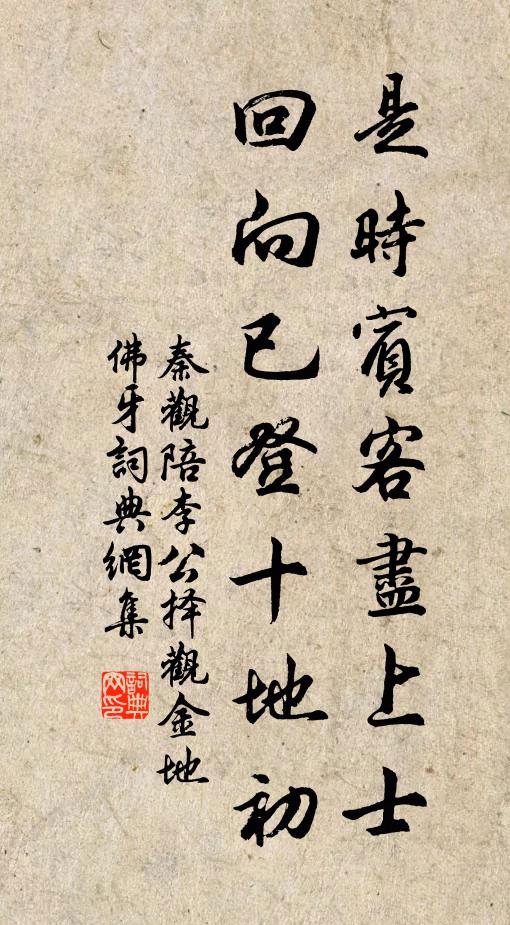 是時賓客盡上士
回向已登十地初
秦觀陪李公择觀金地
佛牙詞典網集
詞典
网印